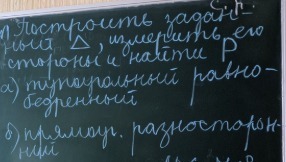 Построить задан-
ный △, измерить его
стороны и найти P
а) тупоугольный равно-
бедренный
б) прямоуг. разносторон-
ний